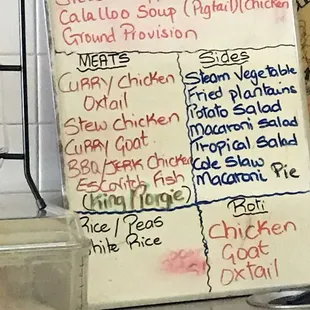 Calalloo Soup (Pigtail)(Chicken
Ground Provision
MEATS
CURRY/Chicken
Oxtail
Stew chicken
Curry Goat
BBQ/JERK Chicken
Escovitch Fish
(King/Porgie)
Rice/Peas
White Rice
Sides
Steam Vegetable
Fried plantains
Potato Salad
Macaroni Salad
Tropical Salad
Cole Slaw
Macaroni Pie
Roti
Chicken
Goat
Oxtail